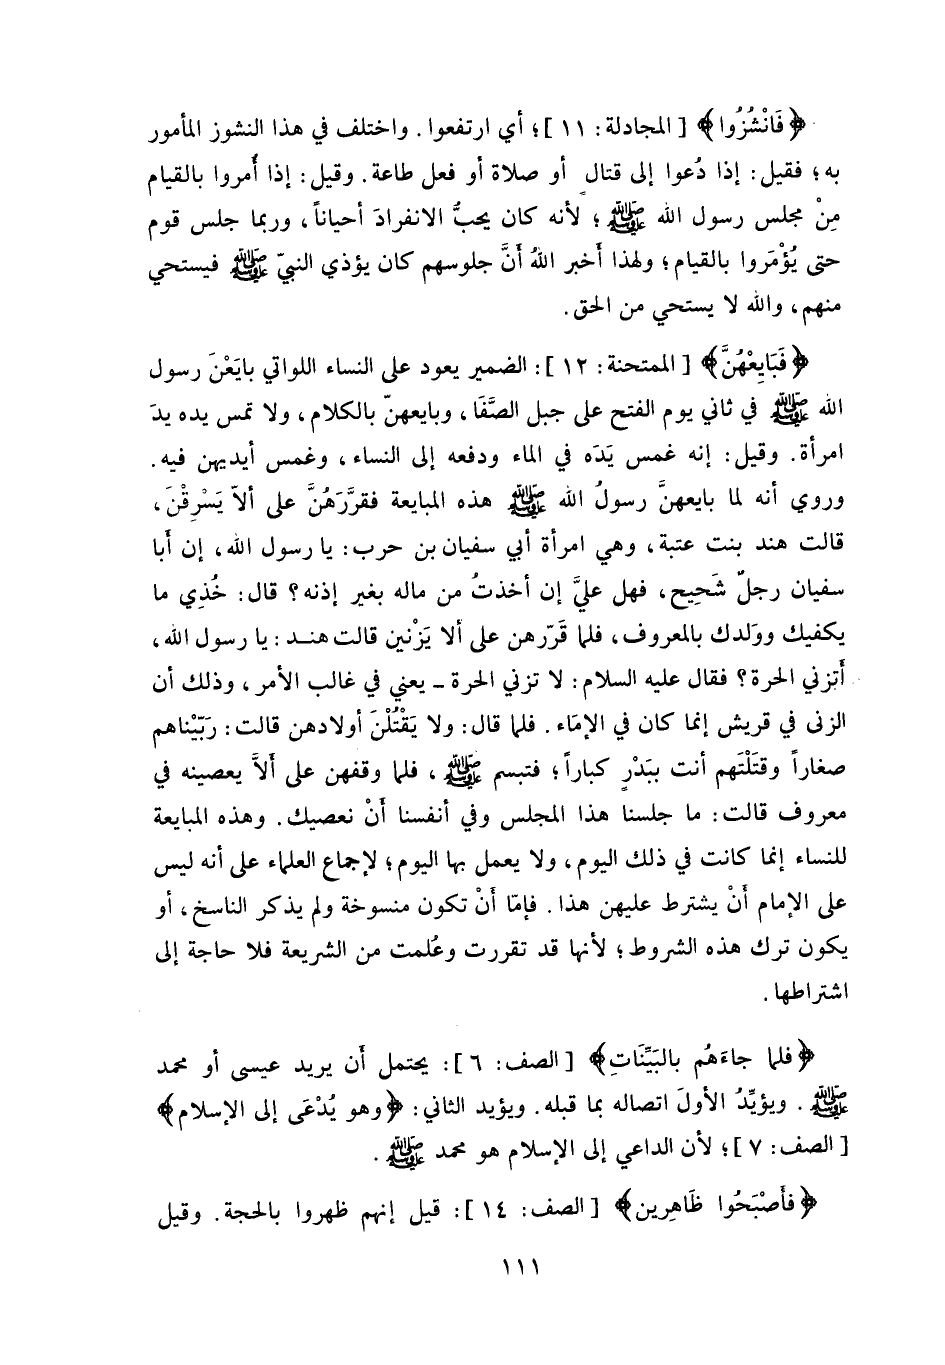 ﴿فَانْشُزُوا﴾ [المجادلة: ١١]؛ أي ارتفعوا. واختلف في هذا النشوز المأمور
به؛ فقيل: إذا دُعوا إلى قتالٍ أو صلاة أو فعل طاعة. وقيل: إذا أُمروا بالقيام
مِنْ مجلس رسول الله ﷺ؛ لأنه كان يحبُّ الانفرادَ أحياناً، وربما جلس قوم
حتى يُؤْمَروا بالقيام؛ ولهذا أَخبر اللهُ أنَّ جلوسهم كان يؤذي النبيّ ﷺ فيستحي
منهم، والله لا يستحي من الحق.
﴿فَبَايِعْهُنَّ﴾ [الممتحنة: ١٢]: الضمير يعود على النساء اللواتي بايَعْنَ رسول
الله ﷺ في ثاني يوم الفتح على جبل الصَّفَا، وبايعهنّ بالكلام، ولا تمس يده يدَ
امرأة. وقيل: إنه غمس يَدَه في الماء ودفعه إلى النساء، وغمس أيديهن فيه.
وروي أنه لما بايعهنَّ رسولُ الله ﷺ هذه المبايعة فقرَّرَهُنَّ على ألاّ يَسْرِقْنَ،
قالت هند بنت عتبة، وهي امرأة أبي سفيان بن حرب: يا رسول الله، إن أَبا
سفيان رجلٌ شَحِيح، فهل عليَّ إن أخذتُ من ماله بغير إذنه؟ قال: خُذِي ما
يكفيك وولدك بالمعروف، فلما قَرّرهن على ألا يَزْنين قالت هند: يا رسول الله،
أَتزني الحرة؟ فقال عليه السلام: لا تزني الحرة ـ يعني في غالب الأمر، وذلك أن
الزنى في قريش إنما كان في الإمَاء. فلما قال: ولا يَقْتُلْنَ أولادهن قالت: رَبّيْناهم
صغاراً وقتَلْتَهم أنت ببَدْرٍ كباراً؛ فتبسم ﷺ، فلما وقفهن على أَلاَّ يعصينه في
معروف قالت: ما جلسنا هذا المجلس وفي أنفسنا أَنْ نعصيك. وهذه المبايعة
للنساء إنما كانت في ذلك اليوم، ولا يعمل بها اليوم؛ لإجماع العلماء على أنه ليس
على الإمام أَنْ يشترط عليهن هذا. فإمّا أَنْ تكون منسوخة ولم يذكر الناسخ، أو
يكون ترك هذه الشروط؛ لأنها قد تقررت وعُلمت من الشريعة فلا حاجة إلى
اشتراطها.
﴿فلما جاءَهُم بالبَيِّنَاتِ﴾ [الصف: ٦]: يحتمل أَن يريد عيسى أو محمد
ﷺ. ويؤيِّدُ الأولَ اتصاله بما قبله. ويؤيد الثاني: ﴿وهو يُدْعَى إلى الإسلام﴾
[الصف: ٧]؛ لأن الداعي إلى الإسلام هو محمد ﷺ.
﴿فأَصْبَحُوا ظَاهِرين﴾ [الصف: ١٤]: قيل إنهم ظهروا بالحجة. وقيل
١١١